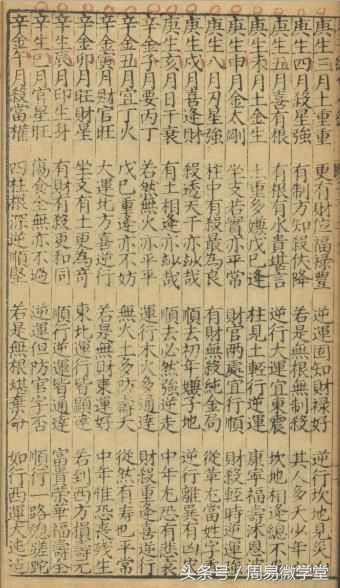 庚生三月土重重 更有財位福祿豐 逆運固知財祿好 逆行坎地見災
庚生四月殺星強 有制方知殺伏降 若是無根無制殺 其人多夭少年
庚生五月喜有根 有根有水貴堪言 逆行大運宜東震 坎地相逢總不
庚生未月土金生 土重多嫌戊己逢 柱見土輕行逆運 康寧福壽沐恩
庚生申月金太剛 坐支若實亦平常 財官兩處宜行順 財殺輕時逆運
庚生八月刃星強 柱中有殺最為良 有財無殺純金局 從革尤當姓字
庚生戌月喜逢財 殺透天干亦妙哉 順去初年嫌子地 逆行離巽有凶
庚生亥月日干衰 有土相逢亦妙哉 順去必然強逆走 中年尤恐有悲哀
辛金子月要丙丁 若然無火亦平平 運行木火多通達 財殺重逢喜逆行
辛金丑月宜丁火 戊己重逢亦不妨 無火土多防壽夭 從然有壽也平常
辛金寅月財官旺 大運北方喜逆行 若是無財東運好 中年惟恐喪殘生
辛金卯月旺財星 坐支有土更為奇 東北運行皆顯達 若到西方損壽元
辛生辰月印生身 有財有殺更和同 順行逆運皆通達 富貴榮華福壽全
辛生巳月官星旺 傷食全無亦不過 逆運但防官字否 順行一路幼蹉跎
辛金午月殺當權 四柱根深逆順堅 若是無根堪棄命 如行西運夭迍
头条号 / 周易微学堂